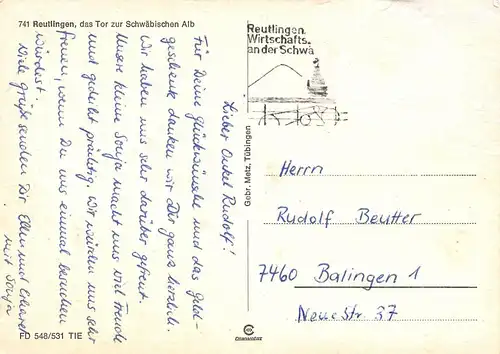 741 Reutlingen, das Tor zur Schwäbischen Alb
Lieber Onkel Rudolf!
Für Deine Glückwünsche und das Geld-
geschenk danken wir Dir ganz herzlich.
Wir haben uns sehr darüber gefreut.
Unsere kleine Sonja macht uns viel Freude
und gedeiht prächtig. Wir würden uns sehr
freuen, wenn Du uns einmal besuchen
würdest.
Viele Grüße senden Dir Ellen und Erhard
mit Sonja
FD 548/531 TIE
Gebr. Metz, Tübingen
Reutlingen
Wirtschafts.
an der Schwä
Herrn
Rudolf Beutter
7460 Balingen 1
Neue Str. 37